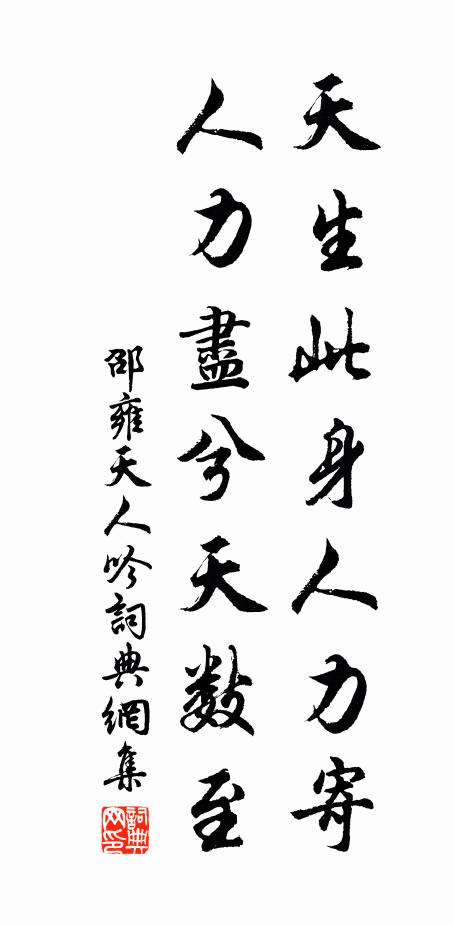 天生此身人力寄
人力盡兮天數至
邵雍天人吟詞典網集
詞典网印